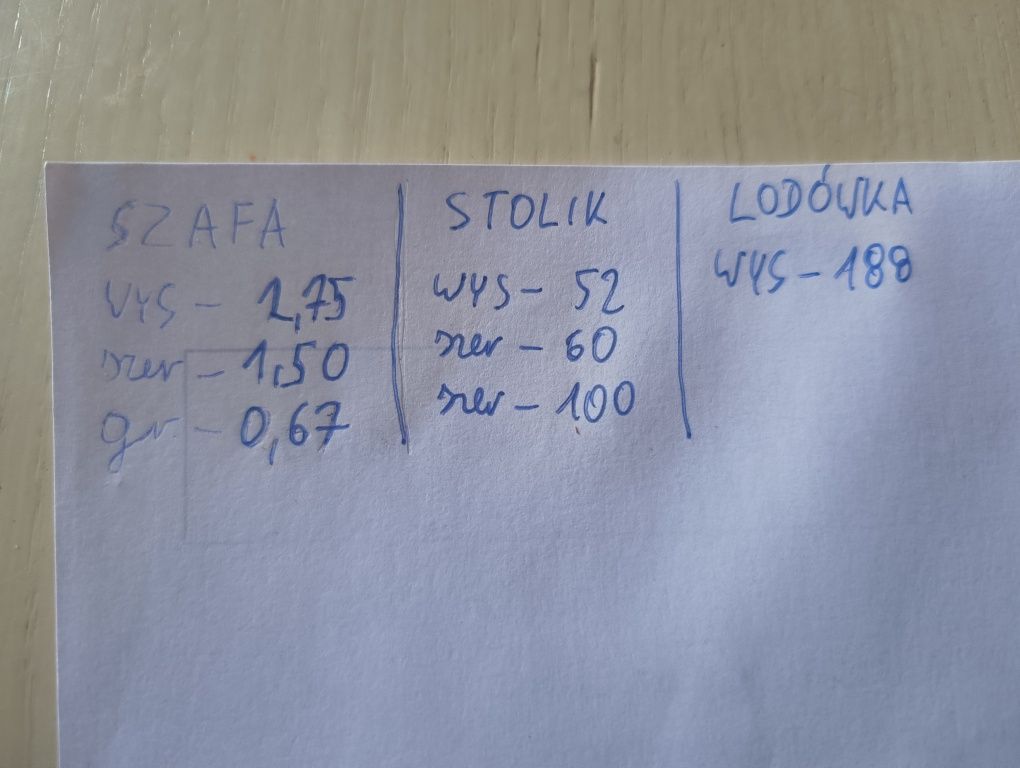 SZAFA
WYS - 1,75
szer - 1,50
gr. - 0,67
STOLIK
WYS - 52
szer - 60
szer - 100
LODÓWKA
WYS - 188